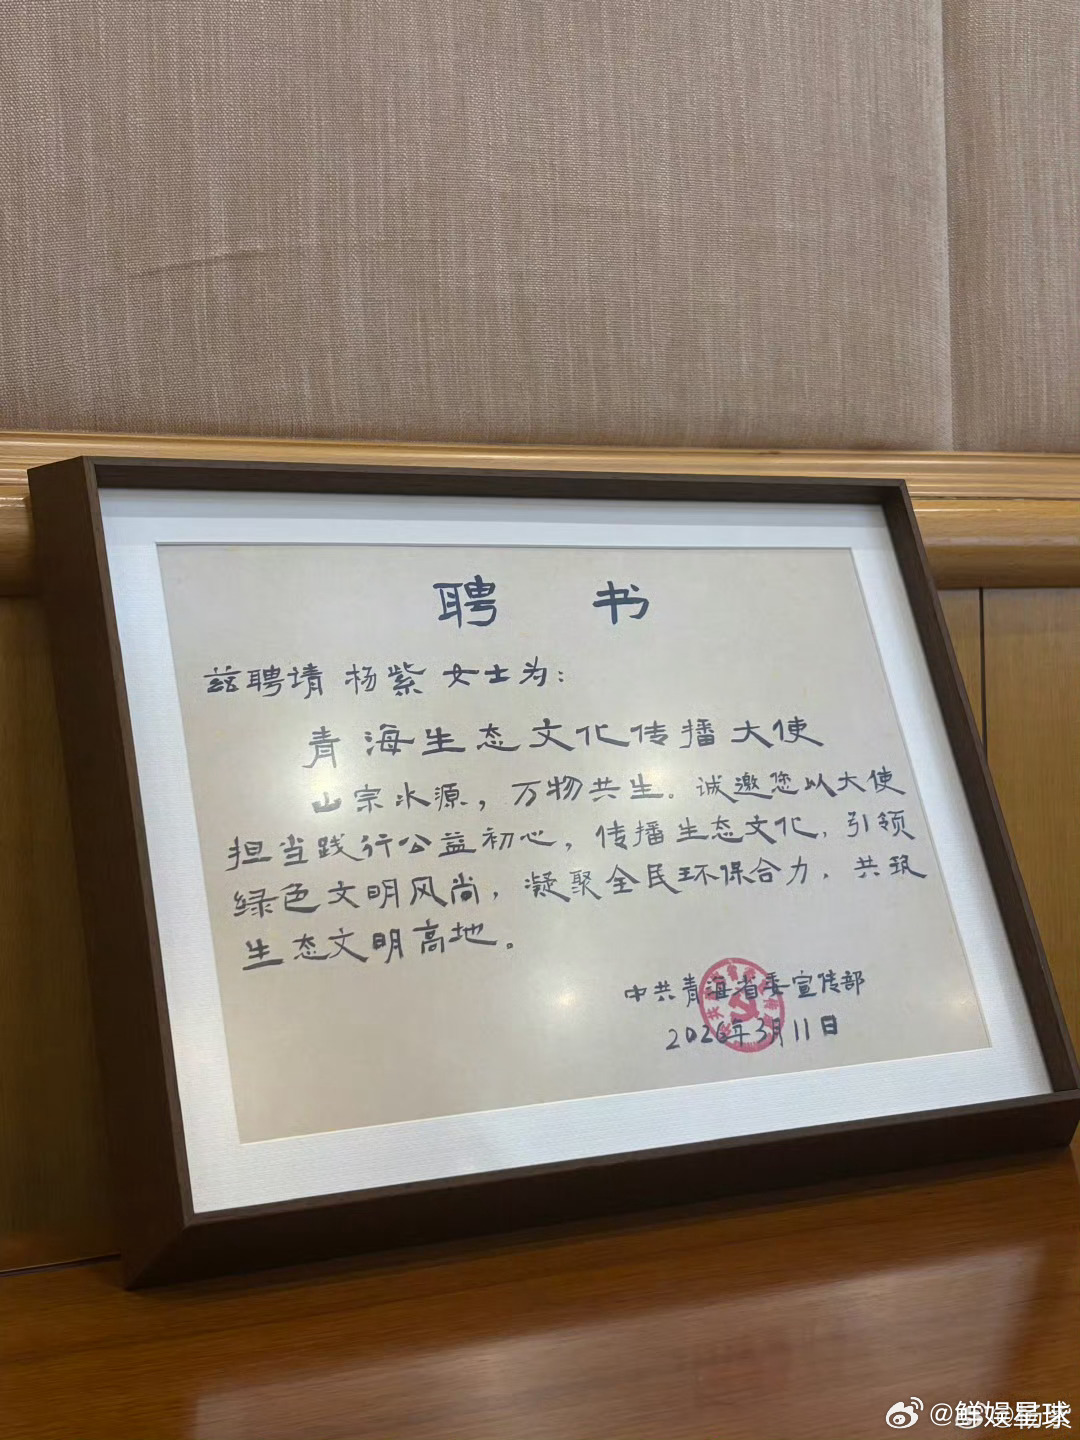 聘 书
兹聘请 杨紫 女士为：
青海生态文化传播大使
山宗水源，万物共生。诚邀您以大使
担当践行公益初心，传播生态文化，引领
绿色文明风尚，凝聚全民环保合力，共筑
生态文明高地。
中共青海省委宣传部
2026年3月11日
@鲜娱星球